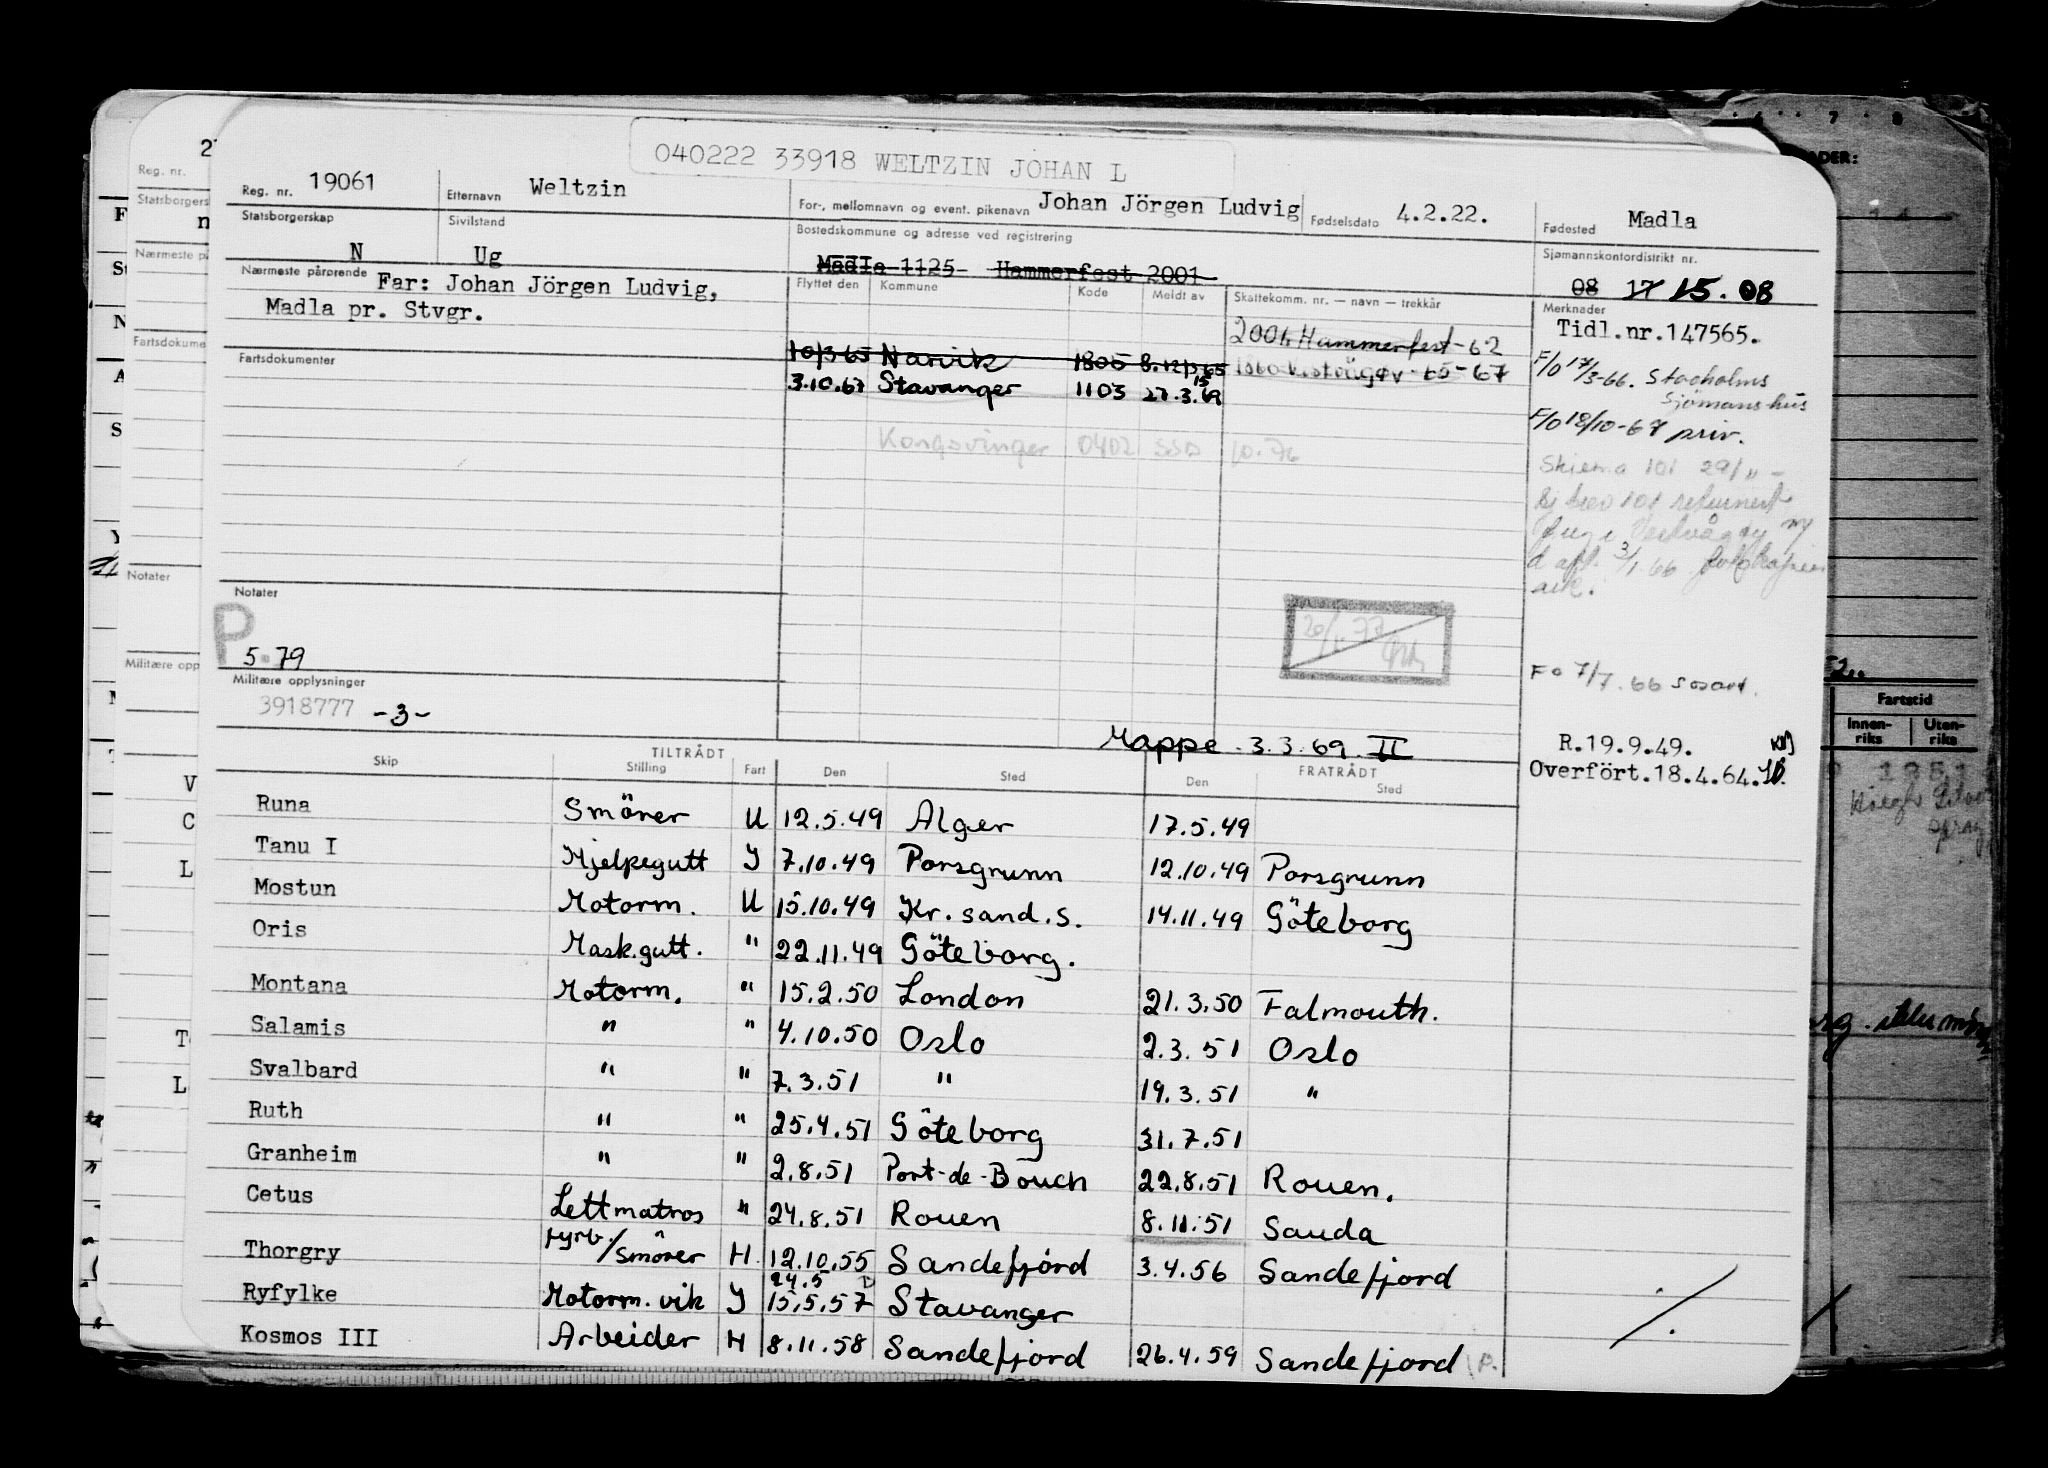 040222 33918 WELTZIN JOHAN L
Reg. nr. 19061 Etternavn Weltzin For-, mellomnavn og event. pikenavn Johan Jörgen Ludvig Fødselsdato 4.2.22. Fødested Madla
Statsborgerskap N Sivilstand Ug Bostedskommune og adresse ved registrering Madla 1125 Hammerfest 2001 Sjømannskontordistrikt nr. 08 17 15. 08
Nærmeste pårørende Far: Johan Jörgen Ludvig,
Madla pr. Stvgr.
Flyttet den Kommune Kode Meldt av Skattekomm. nr. — navn — trekkår Merknader
Tidl.nr.147565.
2004 Hammerfest-62
Fartsdokumenter
10/3 65 Narvik 1805 8.12/3 65
65-67
3.10.67 Stavanger 1103 27.3.69
F/o 17/3-66. Stocholms
Sjömanshus
F/o 18/10-67 priv.
Kongsvinger 0402 SSD 10.76
Skjema 101 29/11 -
3/1.66
ark.
Notater
P
5.79
Militære opplysninger
3918777 -3-
Fo 7/7.66
Mappe 3.3.69 II
R.19.9.49.
Overfört.18.4.64.
Skip TILTRÅDT Stilling Fart Den Sted FRATRÅDT Den Sted
Runa Smörer U 12.5.49 Alger 17.5.49
Tanu I Hjelpegutt J 7.10.49 Porsgrunn 12.10.49 Porsgrunn
Mostun Motorm. U 15.10.49 Kr.sand.S. 14.11.49 Göteborg
Oris Mask.gutt. " 22.11.49 Göteborg.
Montana Motorm. " 15.2.50 London 21.3.50 Falmouth.
Salamis " " 4.10.50 Oslo 2.3.51 Oslo
Svalbard " " 7.3.51 " 19.3.51 "
Ruth " " 25.4.51 Göteborg 31.7.51
Granheim " " 2.8.51 Port-de-Bouch 22.8.51 Rouen.
Cetus Lettmatros " 24.8.51 Rouen 8.11.51 Sauda
Thorgry Fyrb./Smörer H 12.10.55 Sandefjord 3.4.56 Sandefjord
24.5
Ryfylke Motorm.vik J 15.5.57 Stavanger
Kosmos III Arbeider H 8.11.58 Sandefjord 26.4.59 Sandefjord
Reg. nr.
Statsborgers
Nærmeste p
Fartsdokume
Notater
Militære opp
Fartstid
Innen-riks Uten-riks